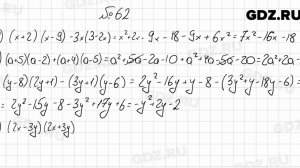 GDZ.RU
№ 62
) (x+2)(x-9)-3x(3-2x)=x²+2x-9x-18-9x+6x²=7x²-16x-18
(a+5)(a-2)+(a+4)(a-5)=a²+5a-2a-10+a²+4a-5a-20=2a²+2a-
(y-8)(2y+1)-(3y+1)(y-6)=2y²-16y+y-8-(3y²+y-18y-6)=
=2y²-15y-8-3y²+17y+6=-y²+2y-2
) (2x-3y)(2x+3y)
GDZ.RU